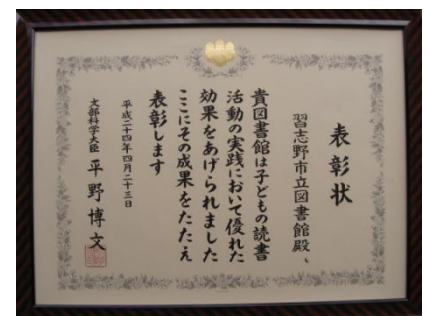 表彰状
習志野市立図書館殿
貴図書館は子どもの読書
活動の実践において優れた
効果をあげられました
ここにその成果をたたえ
表彰します
平成二十四年四月二十三日
文部科学大臣 平野博文